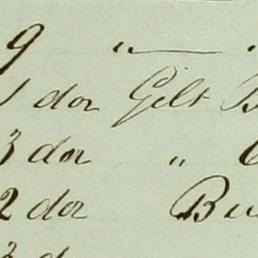 9 " — "
1 doz Gilt B
3 doz "
2 doz Bu